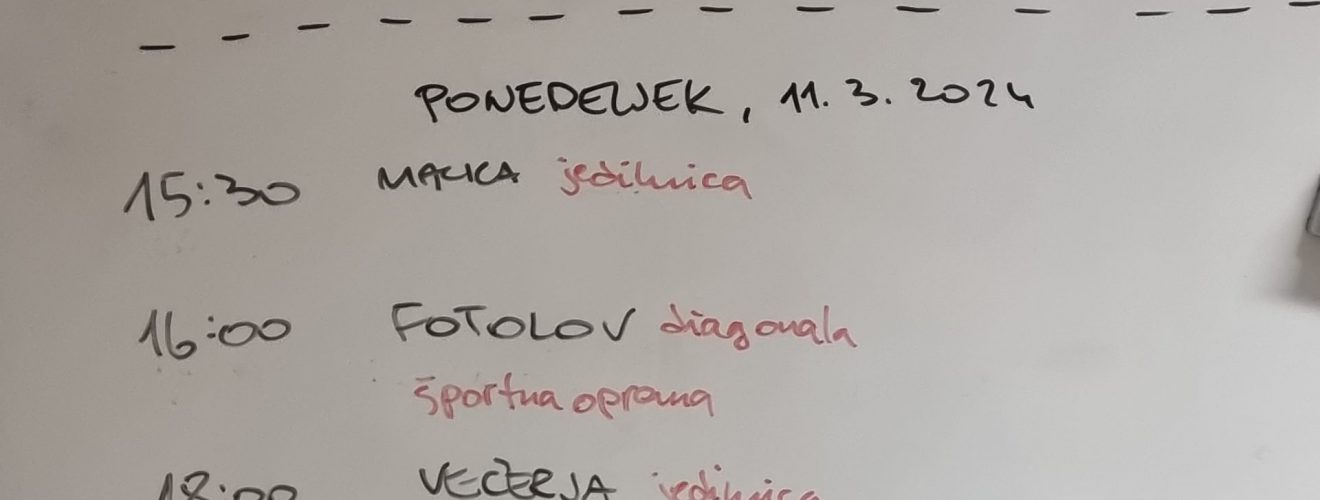 PONEDELJEK, 11. 3. 2024
15:30 MALICA jedilnica
16:00 FOTOLOV diagonala
športna oprema
18:00 VEČERJA jedilnica